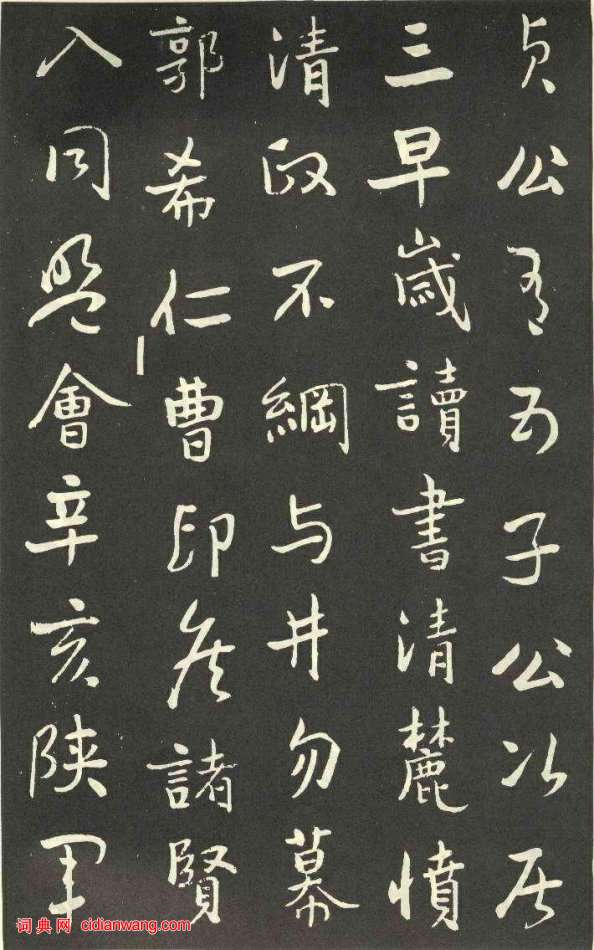 贞公有五子公次居
三早歲讀書清麓憤
清政不綱与井勿幕
郭希仁曹印侯諸賢
入同盟會辛亥陕軍
词典网 cidianwang.com